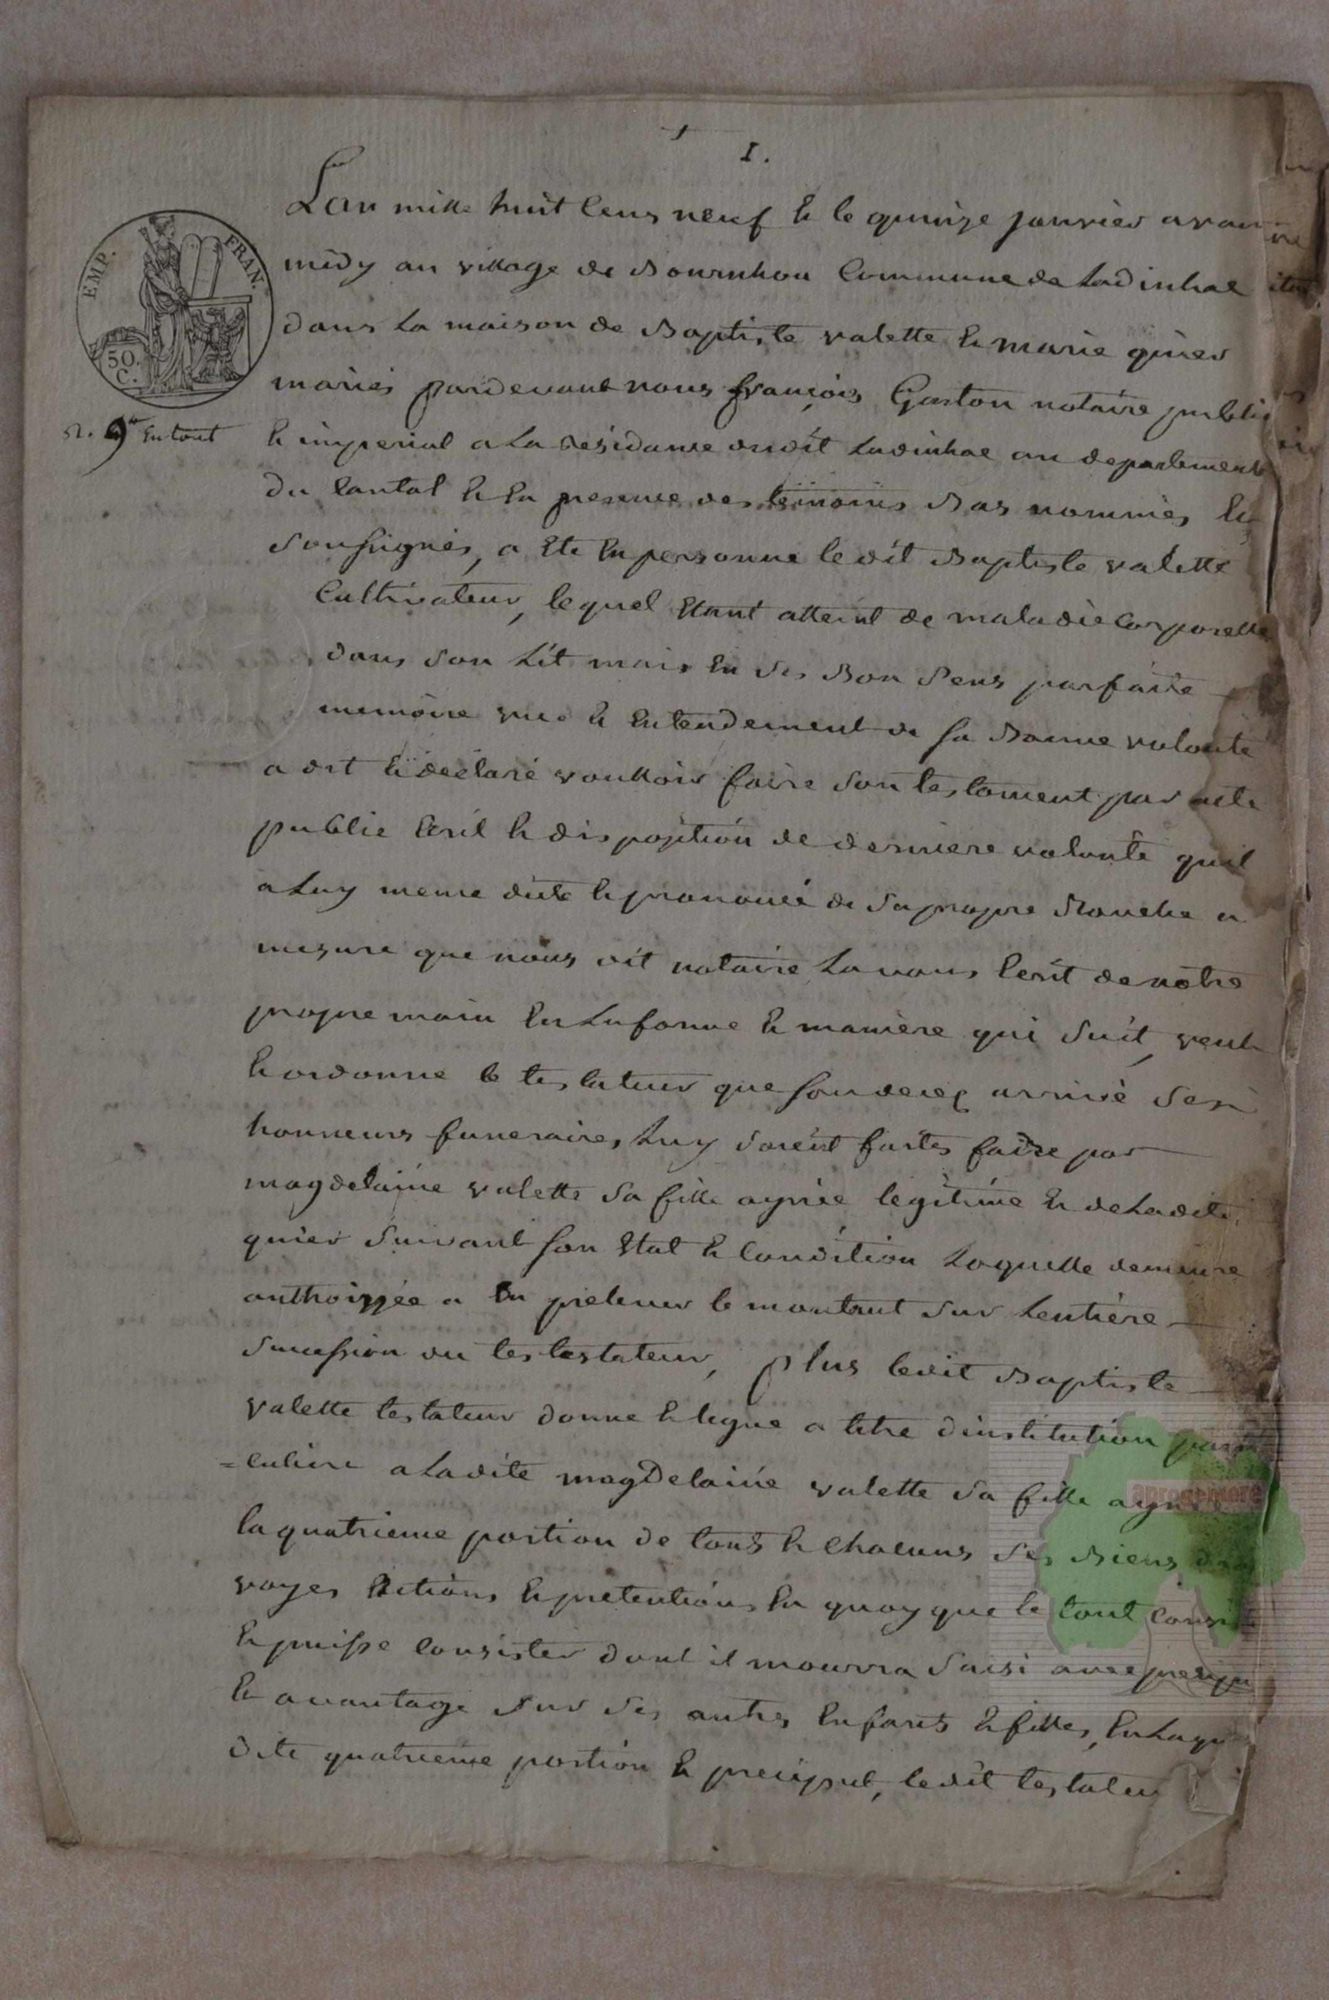 1.
EMP. FRAN.
50. C.
n. 9 En tout
Lan mille huit Cens neuf & le quinze janvier avan
midy au village de Bournhou Commune de Ladinhac
dans La maison de Baptiste valette & marie quier
mariés pardevant nous françois Gaston notaire public
& imperial a La residance dudit Ladinhac au departement
Du Cantal & En presence des temoins Bas nommés &
Soussignés, a Ete En personne ledit Baptiste valette
Cultivateur, lequel Etant atteint de maladie Corporelle
dans son Lit mais En ses Bon Sens parfaite
memoire vue & Entendement de sa Bonne volonté
a dit & declaré voulloir faire son testament par acte
public Ecrit & disposition de derniere volonté quil
a Luy meme dicté & prononcé de Sa propre Bouche a
mesure que nous dit notaire Lavons Ecrit de notre
propre main En La forme & maniere qui Suit, veut
& ordonne le testateur que son decez arrivé Ses
honneurs funeraires Luy soient faites faire par
magdelaine valette Sa fille aynée legitime & de Ladite
quier Suivant son Etat & Condition Laquelle demeure
authorizée a En prelever le montant Sur Lentiere
Sucession du testateur, plus ledit Baptiste
valette testateur donne & legue a titre dinstitution parti
=culiere a Ladite magdelaine valette Sa fille aynée
la quatrieme portion de tous & Chacuns Ses Biens
voyes Actions & pretentions En quoy que le tout Consiste
& puisse Consister dont il mourra Saisi avec
& avantage Sur Ses autres Enfants & filles, En
Dite quatrieme portion & preciput, ledit testateu
aprogemere